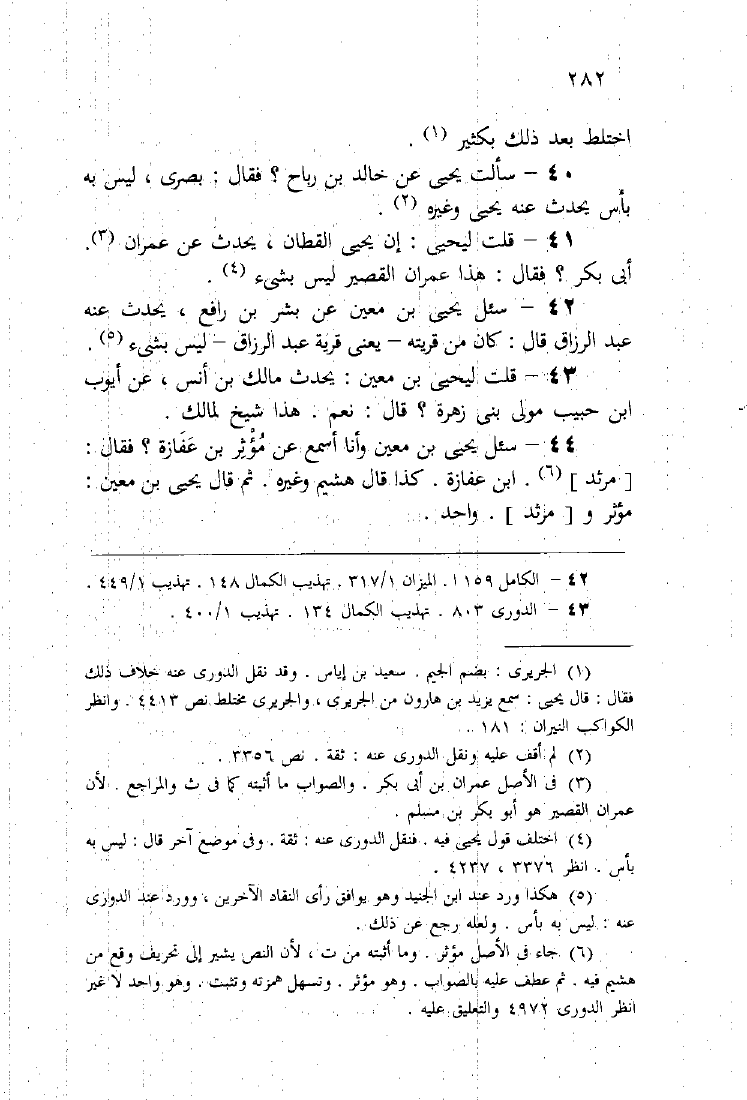 ٢٨٢
اختلط بعد ذلك بكثير (١) .
٤٠ – سألت يحيى عن خالد بن رباح ؟ فقال : بصرى ، ليس به
بأس يحدث عنه يحيى وغيره (٢) .
٤١ – قلت ليحيى : إن يحيى القطان ، يحدث عن عمران (٣).
أبى بكر ؟ فقال : هذا عمران القصير ليس بشىء (٤) .
٤٢ – سئل يحيى بن معين عن بشر بن رافع ، يحدث عنه
عبد الرزاق قال : كان من قريته – يعنى قرية عبد الرزاق – ليس بشىء (٥) .
٤٣ – قلت ليحيى بن معين : يحدث مالك بن أنس ، عن أيوب
ابن حبيب مولى بنى زهرة ؟ قال : نعم . هذا شيخ لمالك .
٤٤ – سئل يحيى بن معين وأنا أسمع عن مُؤْثِر بن عَفَازة ؟ فقال :
[ مرثد ] (٦) . ابن عفازة . كذا قال هشيم وغيره . ثم قال يحيى بن معين :
مؤثر و [ مرثد ] . واحد .
٤٢ – الكامل ١١٥٩ . الميزان ٣١٧/١ . تهذيب الكمال ١٤٨ . تهذيب ٤٤٩/١ .
٤٣ – الدورى ٨٠٣ . تهذيب الكمال ١٣٤ . تهذيب ٤٠٠/١ .
(١) الجريرى : بضم الجيم . سعيد بن إياس . وقد نقل الدورى عنه خلاف ذلك
فقال : قال يحيى : سمع يزيد بن هارون من الجريرى ، والجريرى مختلط نص ٤٤١٣ . وانظر
الكواكب النيران : ١٨١ .
(٢) لم أقف عليه ونقل الدورى عنه : ثقة . نص ٣٣٥٦ .
(٣) فى الأصل عمران بن أبى بكر . والصواب ما أثبته كما فى ث والمراجع . لأن
عمران القصير هو أبو بكر بن مسلم .
(٤) اختلف قول يحيى فيه . فنقل الدورى عنه : ثقة . وفى موضع آخر قال : ليس به
بأس . انظر ٣٣٧٦ ، ٤٢٣٧ .
(٥) هكذا ورد عند ابن الجنيد وهو يوافق رأى النقاد الآخرين ، وورد عند الدورى
عنه : ليس به بأس . ولعله رجع عن ذلك .
(٦) جاء فى الأصل مؤثر . وما أثبته من ت ، لأن النص يشير إلى تحريف وقع من
هشيم فيه . ثم عطف عليه بالصواب . وهو مؤثر . وتسهل همزته وتثبت . وهو واحد لا غير
انظر الدورى ٤٩٧٢ والتعليق عليه .